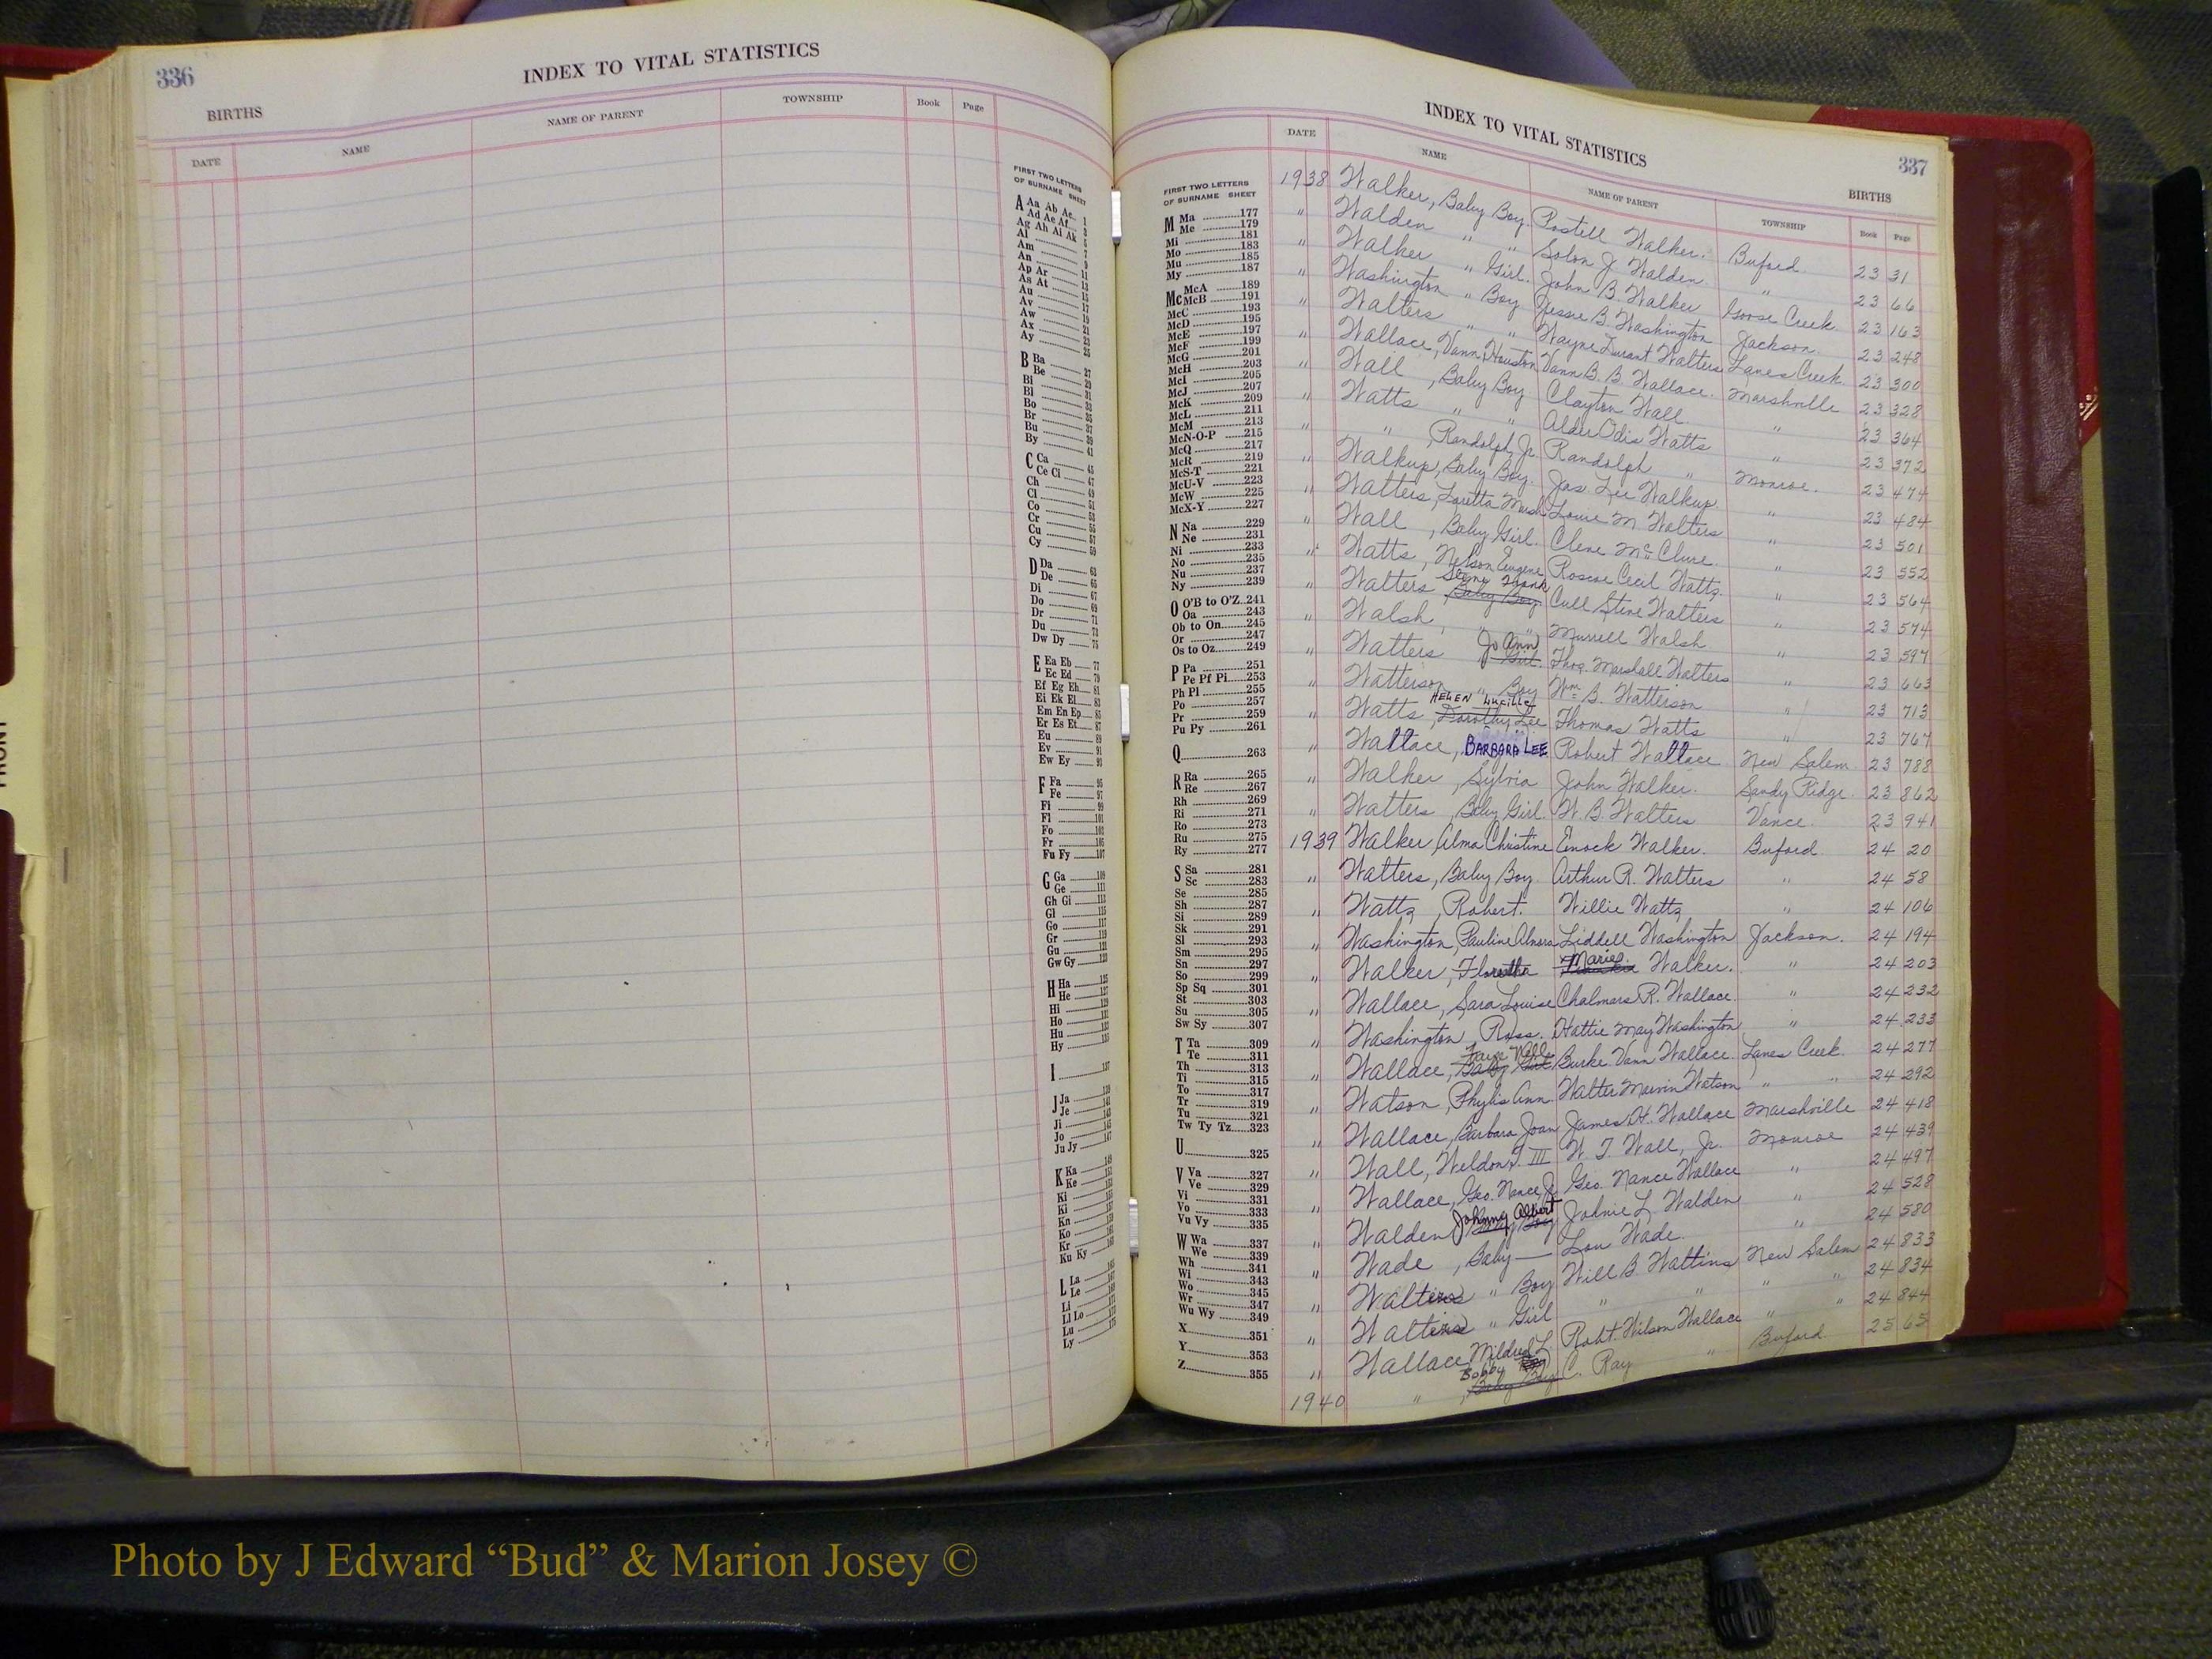 336
INDEX TO VITAL STATISTICS
BIRTHS
DATE NAME NAME OF PARENT TOWNSHIP Book Page
FIRST TWO LETTERS
OF SURNAME SHEET
A Aa Ab Ac 1
Ad Ae Af 3
Ag Ah Ai Ak 5
Al 7
Am 9
An
Ap Ar 11
As At 13
Au 15
Av 17
Aw 19
Ax 21
Ay
B Ba 27
Be 29
Bi 31
Bl 33
Bo 35
Br 37
Bu 39
By 41
C Ca 45
Ce Ci 47
Ch 49
Cl 51
Co 53
Cr 55
Cu 57
Cy 59
D Da 63
De 65
Di 67
Do 69
Dr 71
Du 73
Dw Dy 75
E Ea Eb 77
Ec Ed 79
Ef Eg Eh 81
Ei Ek El 83
Em En Ep 85
Er Es Et 87
Eu 89
Ev 91
Ew Ey 93
F Fa 95
Fe 97
Fi 99
Fl 101
Fo 103
Fr 105
Fu Fy 107
G Ga 109
Ge 111
Gh Gi 113
Gl 115
Go 117
Gr 119
Gu 121
Gw Gy 123
H Ha 125
He 127
Hi 129
Ho 131
Hu 133
Hy 135
I 137
J Ja 139
Je 141
Ji 143
Jo 145
Ju Jy 147
K Ka 149
Ke
Ki
Kl
Kn
Ko
Kr
Ku Ky
L La
Le
Li
Ll Lo
Lu
Ly 175
INDEX TO VITAL STATISTICS
337
BIRTHS
DATE NAME NAME OF PARENT TOWNSHIP Book Page
FIRST TWO LETTERS
OF SURNAME SHEET
M Ma 177
Me 179
Mi 181
Mo 183
Mu 185
My 187
Mc McA 189
McB 191
McC 193
McD 195
McE 197
McF 199
McG 201
McH 203
McI 205
McJ 207
McK 209
McL 211
McM 213
McN-O-P 215
McQ 217
McR 219
McS-T 221
McU-V 223
McW 225
McX-Y 227
N Na 229
Ne 231
Ni 233
No 235
Nu 237
Ny 239
O O'B to O'Z 241
Oa 243
Ob to On 245
Or 247
Os to Oz 249
P Pa 251
Pe Pf Pi 253
Ph Pl 255
Po 257
Pr 259
Pu Py 261
Q 263
R Ra 265
Re 267
Rh 269
Ri 271
Ro 273
Ru 275
Ry 277
S Sa 281
Sc 283
Se 285
Sh 287
Si 289
Sk 291
Sl 293
Sm 295
Sn 297
So 299
Sp Sq 301
St 303
Su 305
Sw Sy 307
T Ta 309
Te 311
Th 313
Ti 315
To 317
Tr 319
Tu 321
Tw Ty Tz 323
U 325
V Va 327
Ve 329
Vi 331
Vo 333
Vu Vy 335
W Wa 337
We 339
Wh 341
Wi 343
Wo 345
Wr 347
Wu Wy 349
X 351
Y 353
Z 355
1938 Walker, Baby Boy Postell Walker. Buford 23 31
" Walden " " Solon J. Walden " 23 66
" Walker " Girl. John B. Walker Goose Creek 23 163
" Washington " Boy Jessie B. Washington Jackson 23 248
" Walters " " Wayne Durant Walters Lanes Creek 23 300
" Wallace, Vann Houston Vann B. B. Wallace. Marshville 23 328
" Wall, Baby Boy Clayton Wall " 23 364
" Watts " " Odis Watts " 23 372
" " , Randolph, Jr. Randolph " Monroe. 23 474
" Walkup, Baby Boy. Jas. Lee Walkup. " 23 484
" Watters, Loretta Louie M. Walters " 23 501
" Wall, Baby Girl. Clene McClure. " 23 552
" Watts, Nelson Eugene Roscoe Cecil Watts. " 23 564
" Walters, Baby Boy Steve Frank Cull Steve Walters " 23 574
" Walsh, " " Murrell Walsh. " 23 597
" Watters Girl. Jo Ann Thos. Marshall Walters " 23 663
" Watterson " Boy Wm. B. Watterson " 23 713
" Watts, Dorothy Lee HELEN Lucille Thomas Watts " 23 767
" Wallace, BARBARA LEE Robert Wallace New Salem 23 788
" Walker, Sylvia John Walker. Sandy Ridge. 23 862
" Watters, Baby Girl. W. B. Walters Vance. 23 941
1939 Walker, Alma Christine Enock Walker. Buford 24 20
" Watters, Baby Boy. Arthur R. Walters " 24 58
" Watts, Robert. Willie Watts " 24 106
" Washington, Pauline Liddell Washington Jackson. 24 194
" Walker, Floretha Marie Walker. " 24 203
" Wallace, Sara Louise Chalmers R. Wallace. " 24 232
" Washington Ross. Hattie May Washington " 24 233
" Wallace, Baby Girl Faye Nell Burke Vann Wallace. Lanes Creek. 24 277
" Watson, Phylis Ann. Walter Marvin Watson " " 24 292
" Wallace, Barbara Joan James H. Wallace Marshville 24 418
" Wall, Weldon T. III W. T. Wall, Jr. Monroe 24 439
" Wallace, Geo. Nance, Jr. Geo. Nance Wallace " 24 497
" Walden Baby Boy Johnny Albert Johnie L. Walden " 24 528
" Wade, Baby — Lou Wade. " 24 580
" " Boy Will B. Watkins New Salem 24 833
" " Girl " " " " 24 834
" Wallace, Mildred L. Robt. Wilson Wallace " " 24 844
1940 " , Baby Boy Bobby Ray C. Ray " Buford. 25 65
Photo by J Edward “Bud” & Marion Josey ©